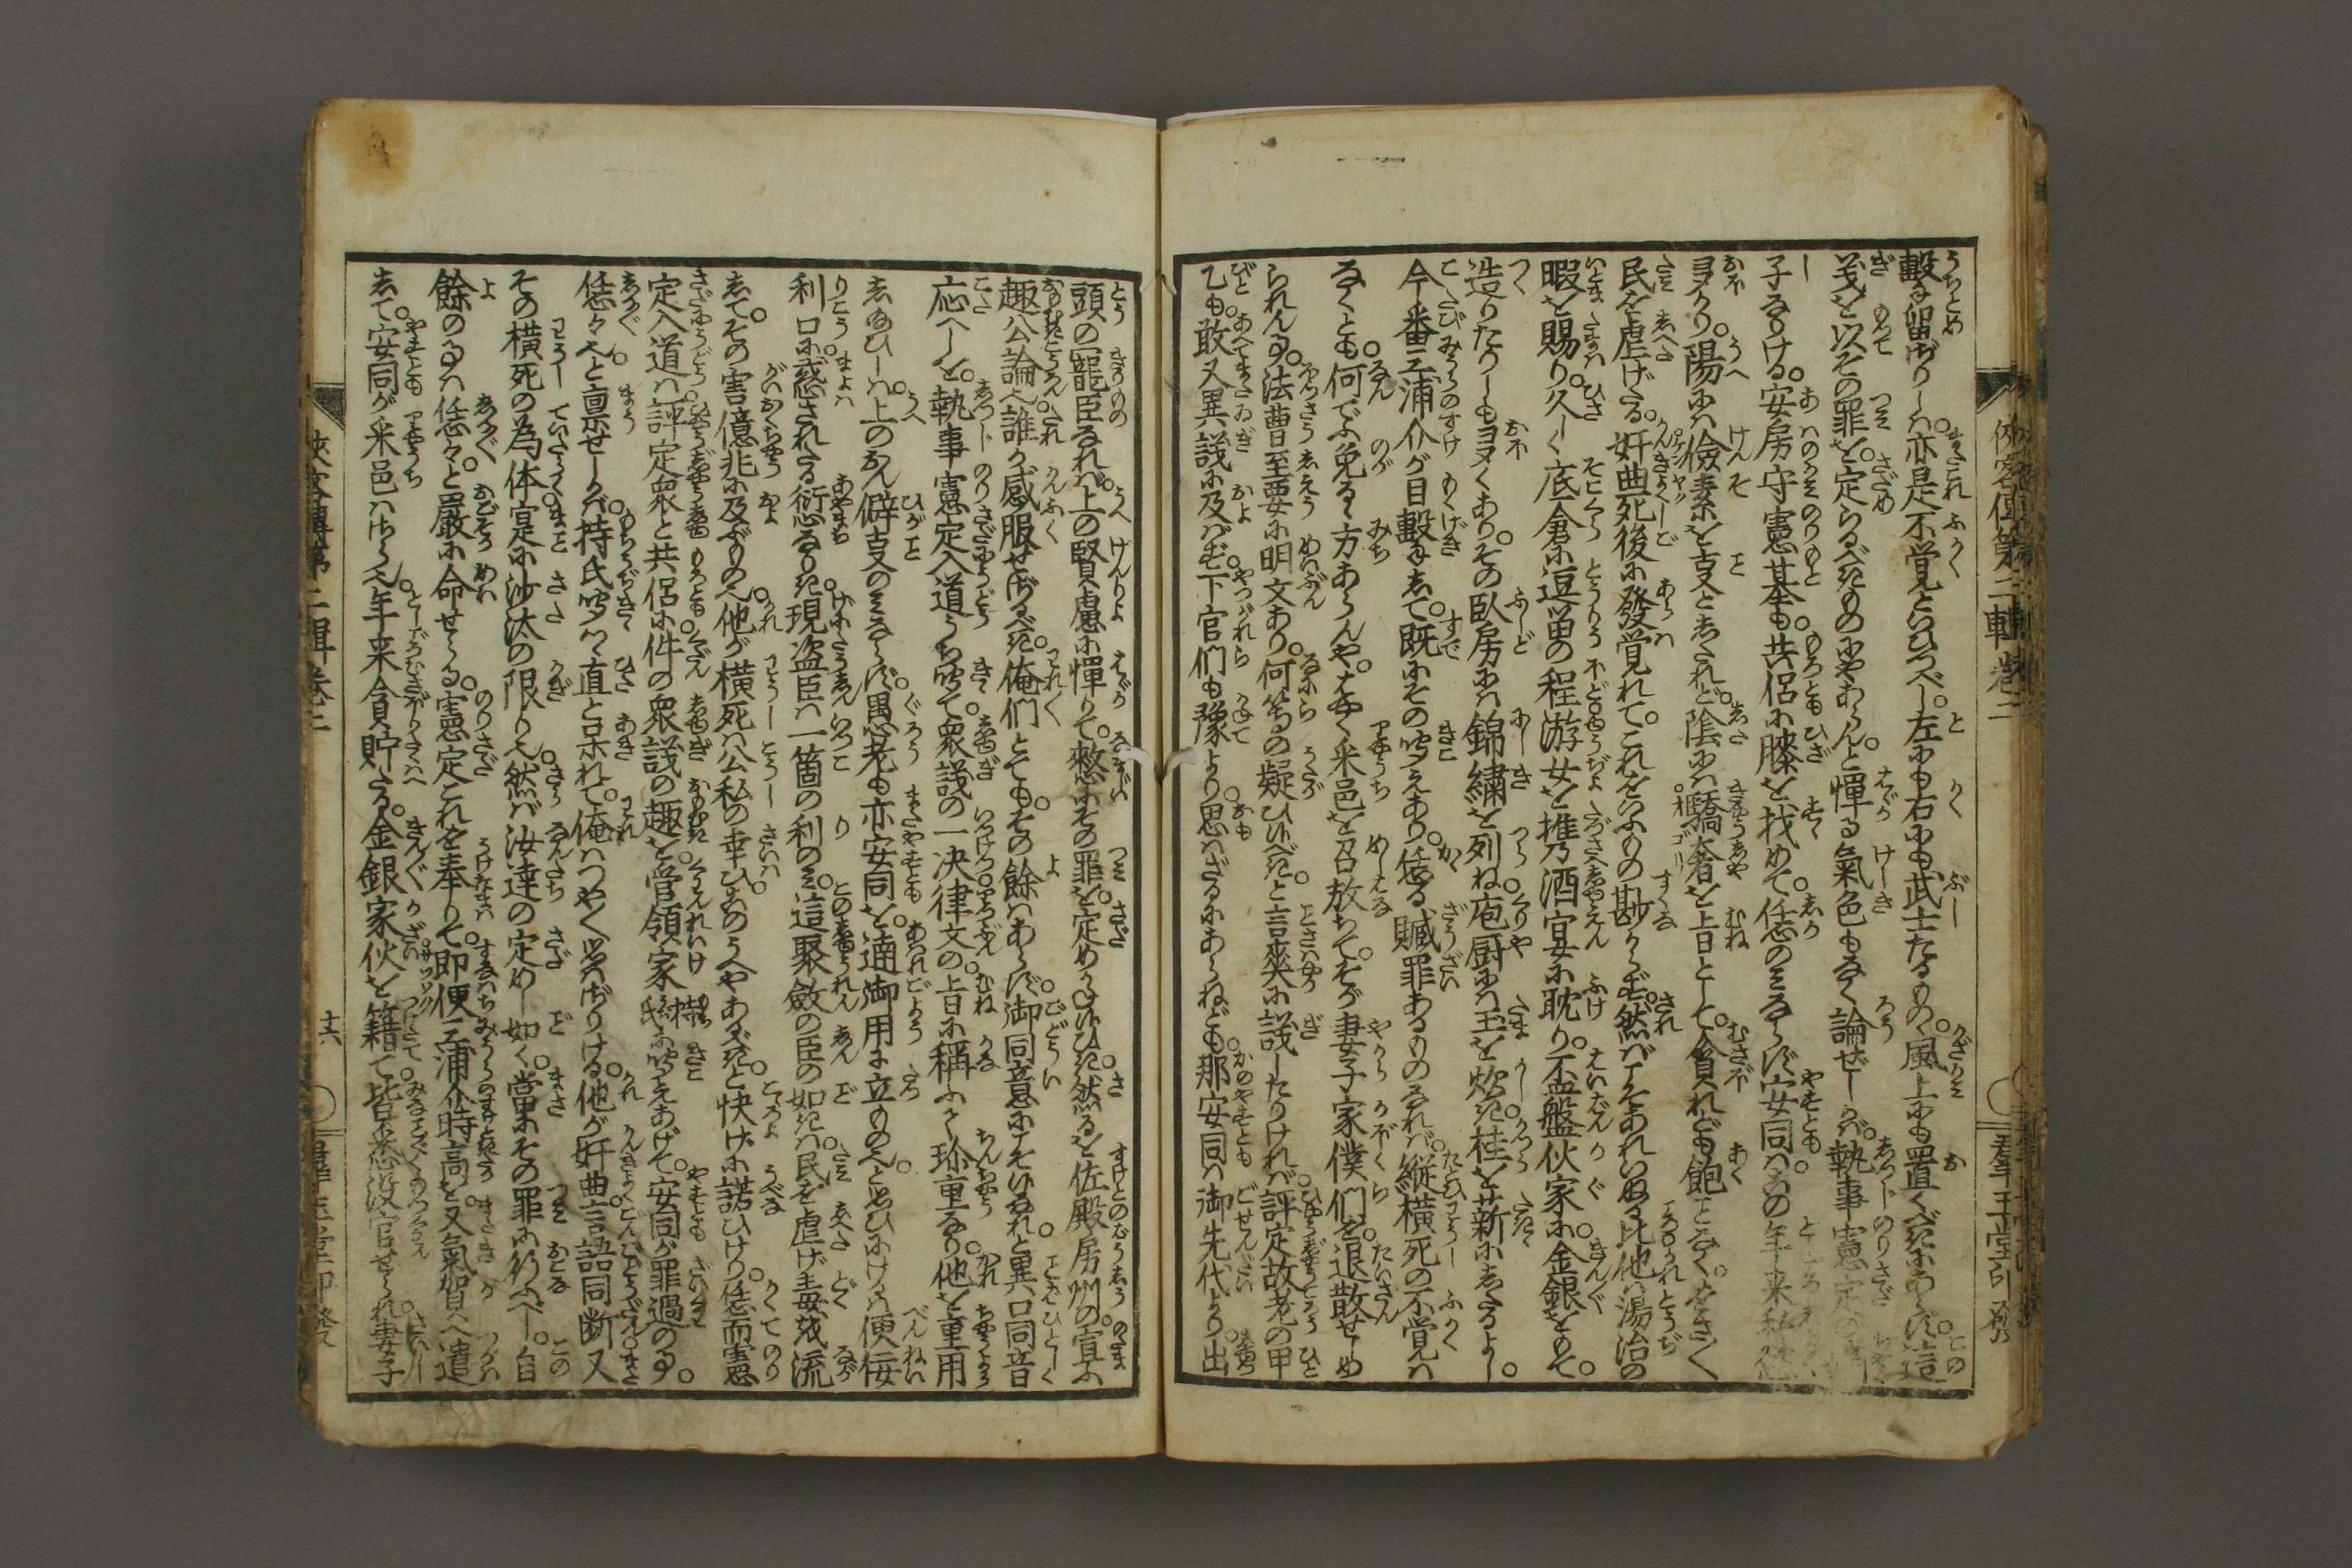 撃も留ざりしは。亦是不覚といひつべし。左にも右にも武士たるものゝ風上にも置くべきにあらず。這
義を以その罪を。定らるべきものにやあらんと憚る氣色もなく論ぜしかば。執事憲定の
子なりける。安房守憲基も。共侶に膝を找めて。恁のみならず。安同はその年来私慾
ヨヲかり。陽には儉素を旨としたれど。陰には驕奢を上日として。貪れども飽ことなく。をさ〳〵
民を虐げたる。奸曲死後に發覚れて。これをいふもの尠からず。然ばにやあれいぬる比他は湯治の
暇を賜り。久しく底倉に逗畄の程。游女を携酒宴に耽り。盃盤伙家に。金銀をもて。
造りたりしもヨヲくあり。その臥房には錦繍を列ね庖厨には玉を炊き桂を薪にしたるよし。
今番三浦介が目撃をして。既にその聞えあり。恁る贓罪あるものなれば。縦横死の不覚は
なくとも。何でふ免るゝ方あらんや。はやく釆邑を召放ちて。そが妻子家僕們を。退散せしめ
られんは。法曹至要に明文あり。何等の疑ひ候べきと。言爽に議したりければ。評定故老の甲
乙も。敢又異議に及ばず。下官們も豫より。思はざるにあらねども。那安同は御先代より。出
頭の寵臣なれば。上の賢慮に憚りて。憖にその罪を。定めかね候ひき。然るを佐殿房州の。宣ふ
趣公論也。誰か感服せざるべき。俺們とても。その餘はあらず。御同意にこそ候なれと異口同音
に応へしを。執事憲定入道うち聞て。衆議の一决律文の。旨に稱ふて珎重なり。他を重用
し給ひしは。上のおん僻事のみならず。愚老も亦安同を。遖御用に立ものゝと思ひにければ。便佞
利口に惑されたる衍なりき。現盗臣は一箇の利のみ。這聚斂の臣の如きは。民を虐げ毒を流
して。その害億兆に及ぶもの也。他が横死は公私の幸ひ。このうへやあるべきと。快げに諾ひけり。恁而憲
定入道は。評定衆と共侶に。件の衆議の趣を。管領家持氏に聞えあげて。安同が罪過の事。
恁々也と禀せしかば。持氏聞つゝ直と呆れて。俺はつや〳〵思はざりける。他が奸曲。言語同断。又
その横死の為体。寔に沙汰の限り也。然ば汝達の定めし如く。當にその罪に行ふべし。自
餘の事は恁々と。嚴に命せらる。憲定これを奉りて。即便三浦介時高を。又氣賀へ遣
して。安同が釆邑はさら也。年来貪貯たる。金銀家伙を籍て。皆悉没官せられ。妻子
侠客傳第二輯卷三
群玉堂印發
侠客傳第二輯卷三
十六
群玉堂印發